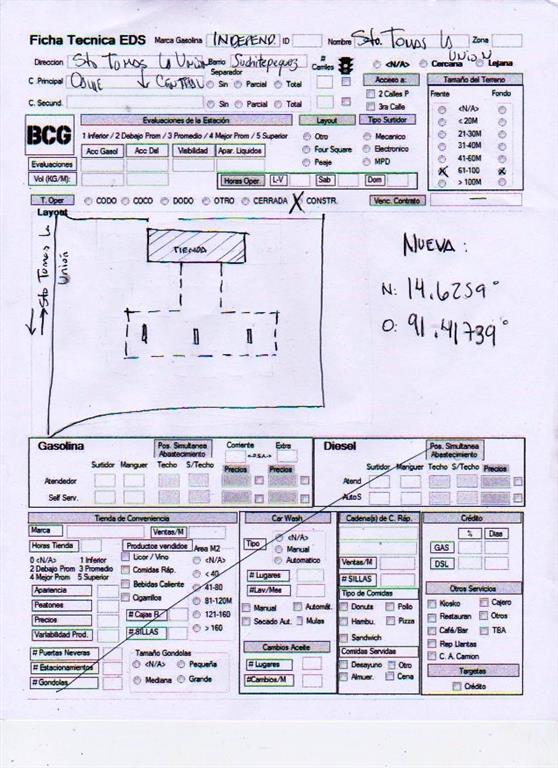 Ficha Tecnica EDS Marca Gasolina INDEPEND. ID Nombre Sto. Tomas La Unión Zona
Direccion Sto Tomas La Unión Barrio Suchitepequez # Carriles <N/A> Cercana Lejana
C. Principal CALLE ↓ CENTRAL Separador Sin Parcial Total Acceso a: Tamaño del Terreno
2 Calles P Frente Fondo
C. Secund. Sin Parcial Total 3ra Calle <N/A>
BCG Evaluaciones de la Estación Layout Tipo Surtidor < 20M
1 Inferior / 2 Debajo Prom / 3 Promedio / 4 Mejor Prom / 5 Superior Otro Mecanico 21-30M
Acc Gasol Acc Del Visibilidad Apar. Liquidos Four Square Electronico 31-40M
Evaluaciones Peaje MPD 41-60M
Vol (KG/M): Horas Oper. L-V Sab Dom X 61-100 X
> 100M
T. Oper CODO COCO DODO OTRO CERRADA X CONSTR. Venc. Contrato
Layout
Sto Tomas La Unión
TIENDA
NUEVA:
N: 14.6259°
O: 91.41739°
Gasolina Pos. Simultanea Abastecimiento Corriente <-P.S.A.-> Extra Diesel Pos. Simultanea Abastecimiento
Surtidor Manguer Techo S/Techo Precios Precios Surtidor Manguer Techo S/Techo Precios
Atendedor Atend
Self Serv. AutoS
Tienda de Conveniencia Car Wash Cadena(s) de C. Ráp. Crédito
Marca Ventas/M <N/A> % Dias
Horas Tienda Productos vendidos Area M2 Tipo Manual GAS
0 <N/A> 1 Inferior Licor / Vino <N/A> Automatico Ventas/M DSL
2 Debajo Prom 3 Promedio Comidas Ráp. < 40 # Lugares # SILLAS
4 Mejor Prom 5 Superior Bebidas Caliente 41-80 #Lav/Mes Tipo de Comidas Otros Servicios
Apariencia Cigarrilos 81-120M Manual Automát. Donuts Pollo Kiosko Cajero
Peatones # Cajas R. 121-160 Secado Aut. Mulas Hambu. Pizza Restauran Otros
Precios #SILLAS > 160 Sandwich Café/Bar TBA
Variabilidad Prod. Cambios Aceite Comidas Servidas Rep Llantas
# Puertas Neveras Tamaño Gondolas # Lugares Desayuno Otro C. A. Camion
# Estacionamientos <N/A> Pequeña #Cambios/M Almuer. Cena Targetas
#Gondolas Mediana Grande Crédito